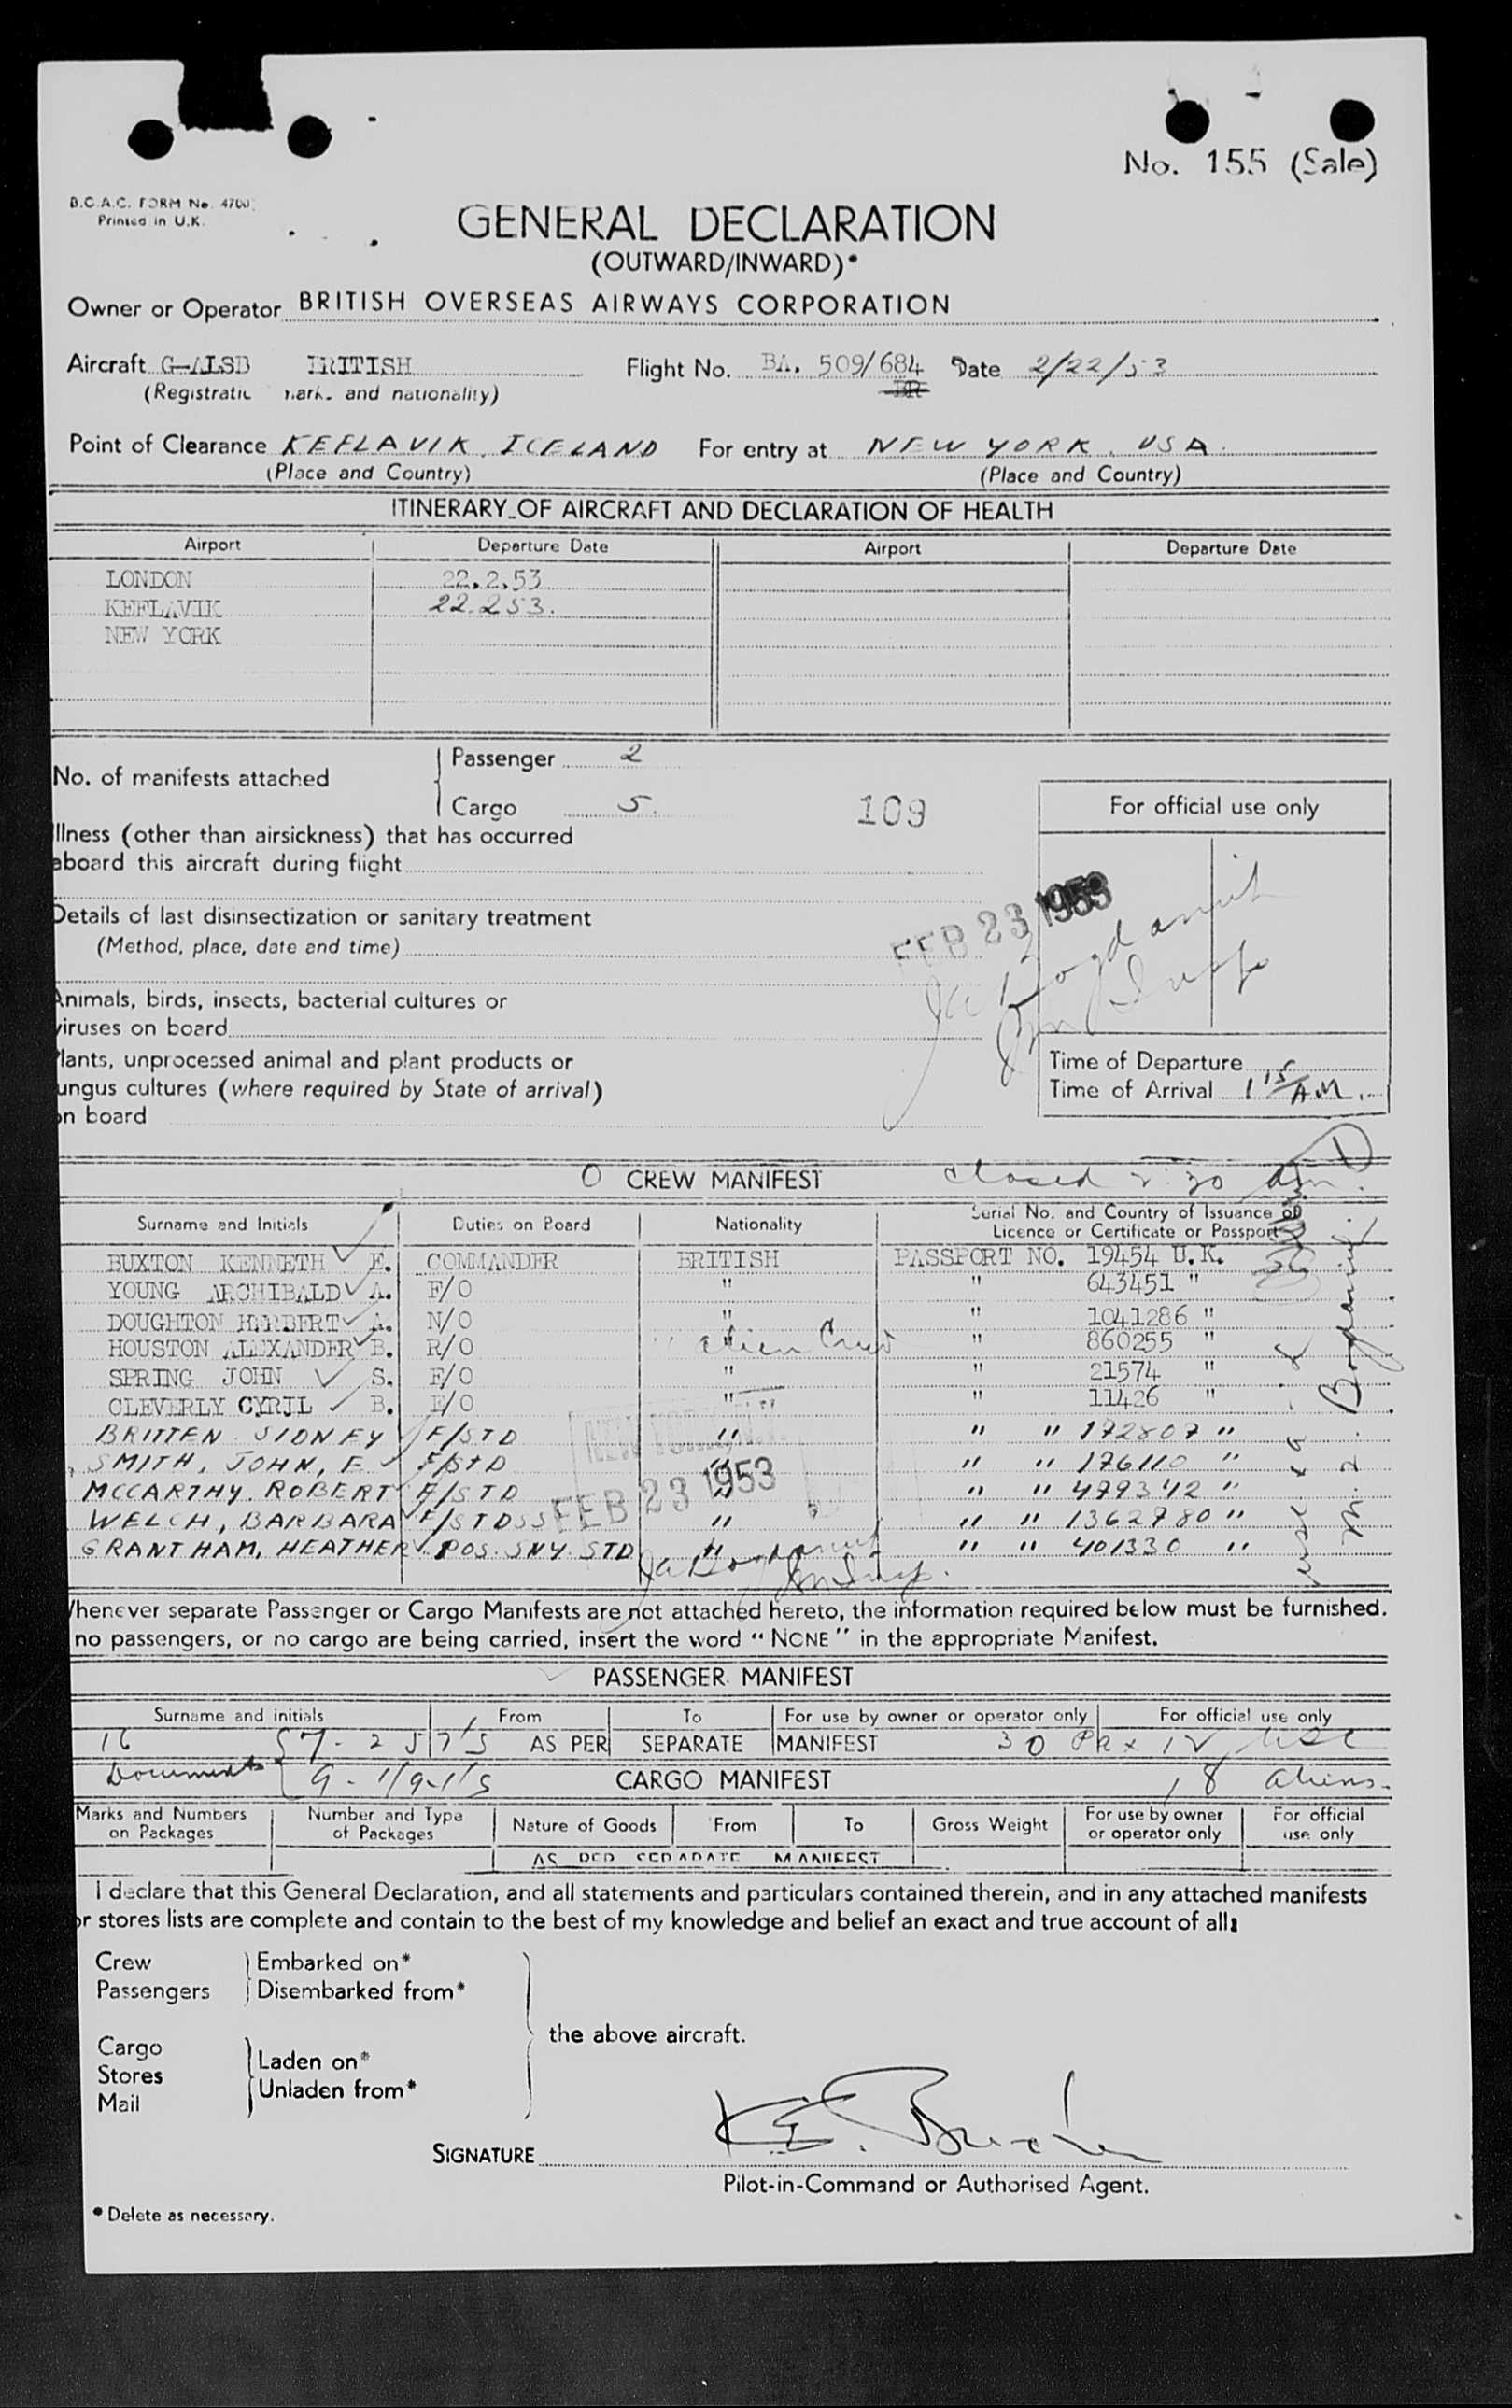 No. 155 (Sale)
B.O.A.C. FORM No. 4700
Printed in U.K.
GENERAL DECLARATION
(OUTWARD/INWARD)*
Owner or Operator BRITISH OVERSEAS AIRWAYS CORPORATION
Aircraft G-ALSB BRITISH Flight No. BA. 509/684 Date 2/22/53
BR
(Registration mark and nationality)
Point of Clearance KEFLAVIK, ICELAND For entry at NEW YORK, USA.
(Place and Country) (Place and Country)
ITINERARY OF AIRCRAFT AND DECLARATION OF HEALTH
Airport Departure Date Airport Departure Date
LONDON 22.2.53
KEFLAVIK 22.2.53.
NEW YORK
No. of manifests attached
Passenger 2
Cargo 5.
109
For official use only
llness (other than airsickness) that has occurred
aboard this aircraft during flight
Details of last disinsectization or sanitary treatment
(Method, place, date and time)
FEB 23 1953
Animals, birds, insects, bacterial cultures or
viruses on board
lants, unprocessed animal and plant products or
ungus cultures (where required by State of arrival)
on board
Time of Departure
Time of Arrival 1 15 A.M.
O CREW MANIFEST closed 2:30 am.
Surname and Initials Duties on Board Nationality Serial No. and Country of Issuance of
Licence or Certificate or Passport
BUXTON KENNETH E. COMMANDER BRITISH PASSPORT NO. 19454 U.K.
YOUNG ARCHIBALD A. F/O " " 643451 "
DOUGHTON HERBERT A. N/O " " 1041286 "
HOUSTON ALEXANDER B. R/O " " 860255 "
alien Crew
SPRING JOHN S. E/O " " 21574 "
CLEVERLY CYRIL B. E/O " " 11426 "
BRITTEN SIDNEY F/STD " " " 172807 "
SMITH, JOHN, E F/STD " " " 176110 "
MCCARTHY. ROBERT F/STD " " " 499342 "
WELCH, BARBARA F/STDSS " " " 1362780 "
GRANTHAM, HEATHER POS. SNY. STD " " " 401330 "
NEW YORK, N.Y.
FEB 23 1953
Whenever separate Passenger or Cargo Manifests are not attached hereto, the information required below must be furnished.
no passengers, or no cargo are being carried, insert the word "NONE" in the appropriate Manifest.
PASSENGER MANIFEST
Surname and initials From To For use by owner or operator only For official use only
16 7-257's AS PER SEPARATE MANIFEST 30 Pax 12 USC
Documents 9-1/9-1's CARGO MANIFEST 18 aliens.
Marks and Numbers on Packages Number and Type of Packages Nature of Goods From To Gross Weight For use by owner or operator only For official use only
AS PER SEPARATE MANIFEST
I declare that this General Declaration, and all statements and particulars contained therein, and in any attached manifests
or stores lists are complete and contain to the best of my knowledge and belief an exact and true account of all:
Crew Embarked on*
Passengers Disembarked from*
the above aircraft.
Cargo
Stores Laden on*
Mail Unladen from*
SIGNATURE K E. Buxton
Pilot-in-Command or Authorised Agent.
* Delete as necessary.